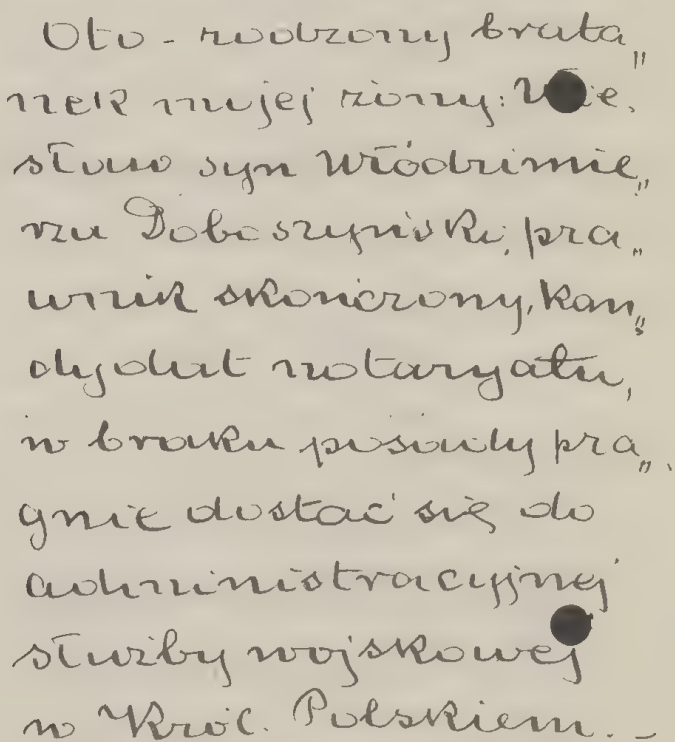 Oto - rodzony brata„
nek mojej żony: Wie„
sław syn Włodzimie„
rza Doboszyński, pra„
wnik skończony, kan„
dydat notaryatu,
w braku posady pra„
gnie dostać się do
administracyjnej
służby wojskowej
w Król. Polskiem. -